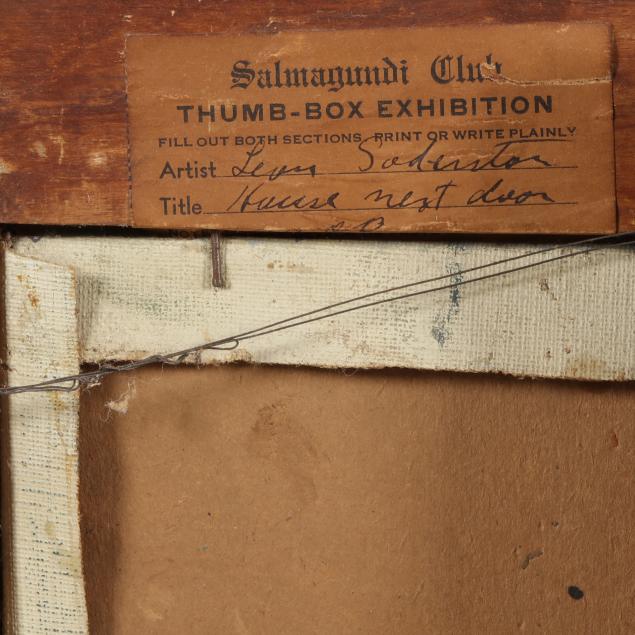 Salmagundi Club
THUMB-BOX EXHIBITION
FILL OUT BOTH SECTIONS, PRINT OR WRITE PLAINLY
Artist Leon Soderston
Title House next door